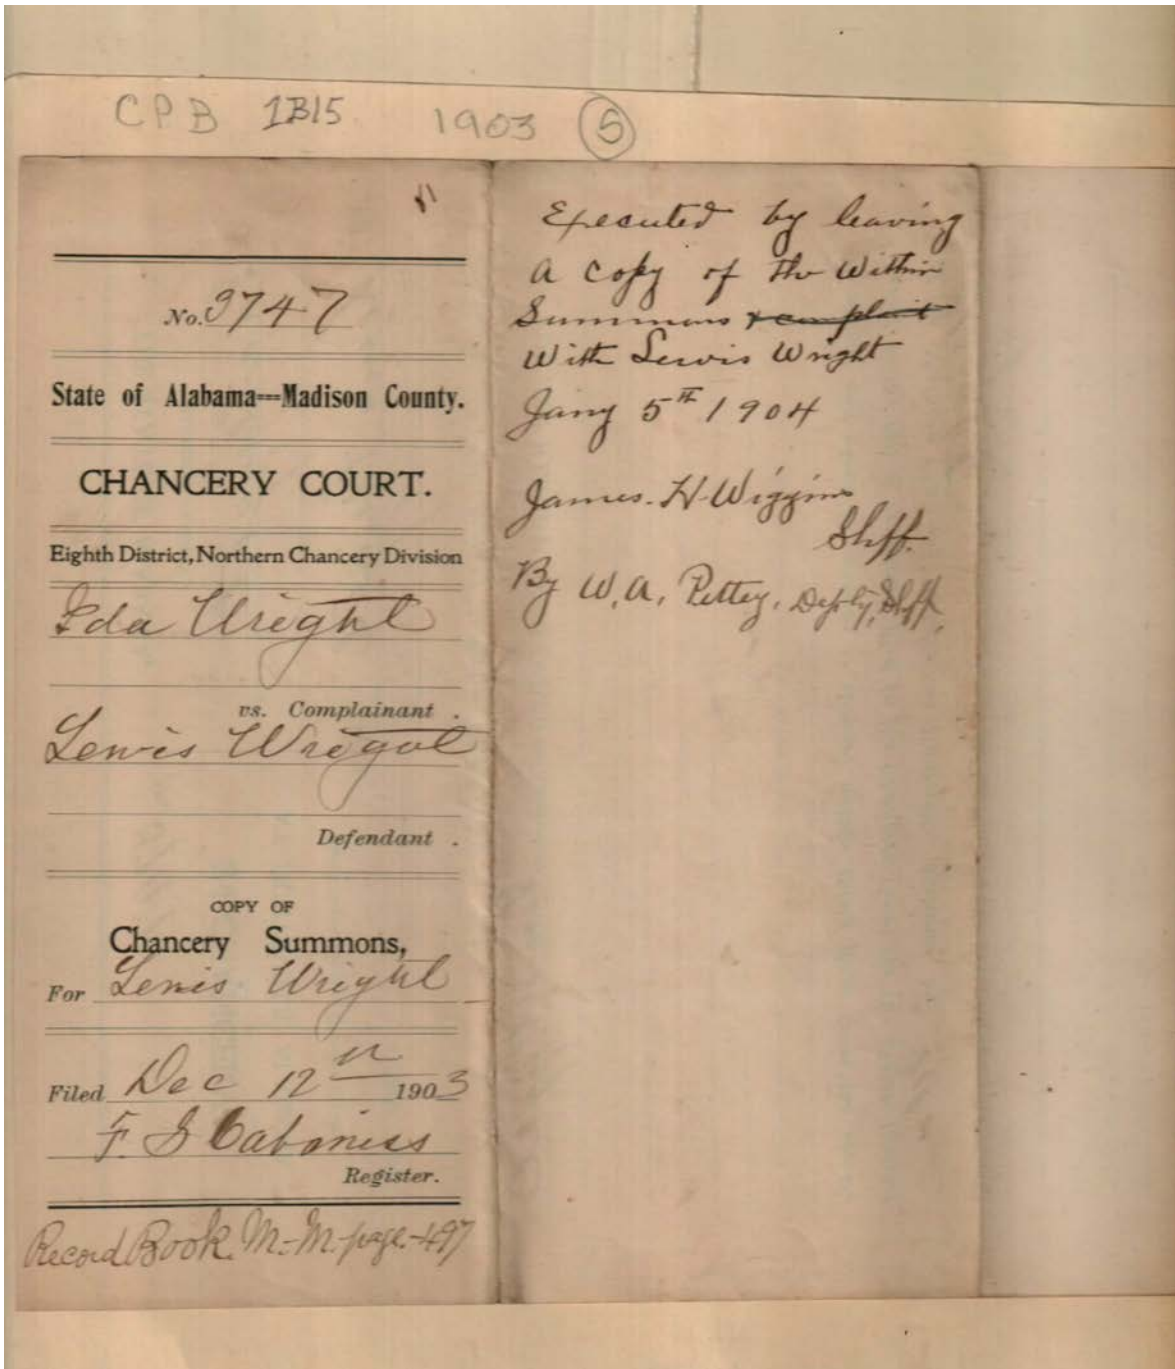 CPB 1B15 1903 5
No. 3747
State of Alabama---Madison County.
CHANCERY COURT.
Eighth District, Northern Chancery Division
Ida Wright
vs. Complainant .
Lewis Wright
Defendant .
COPY OF
Chancery Summons,
For Lewis Wright
Filed Dec 12th 1903
F. S Cabaniss
Register.
Record Book. M.-M. page.-497
Executed by leaving
a copy of the within
Summons & complaint
With Lewis Wright
Jany 5th 1904
James. H. Wiggins
Shff.
By W. A. Pettey, Depty, Shff,